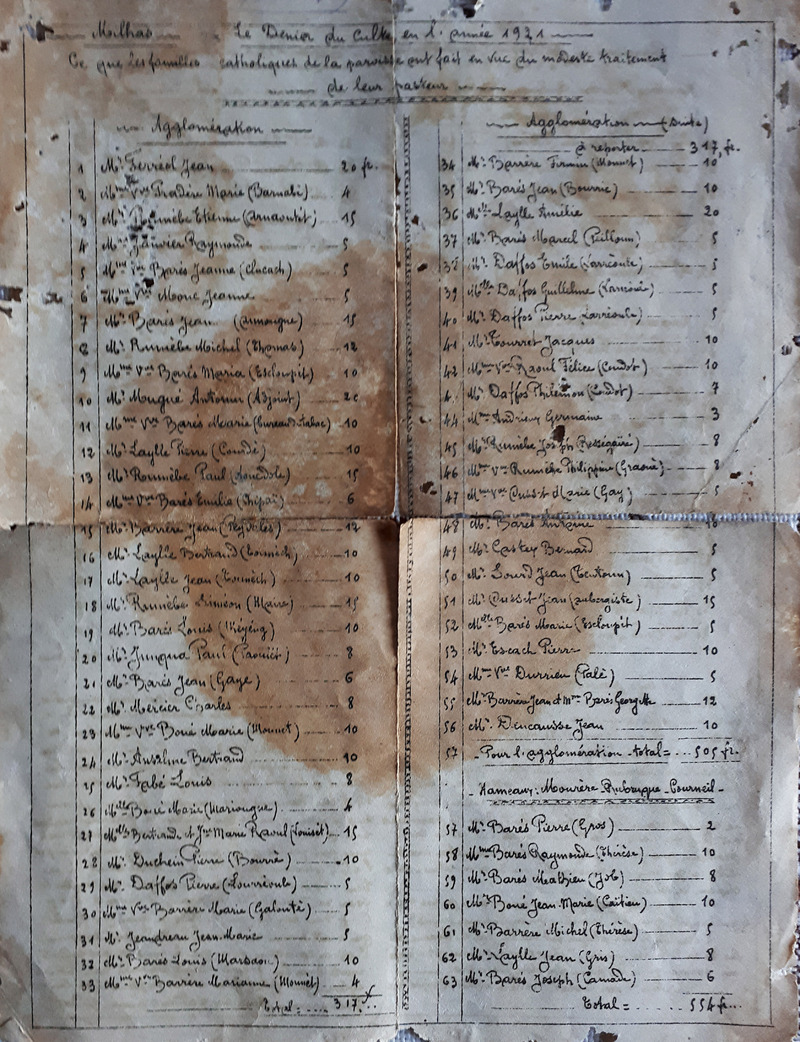 Milhas Le Denier du Culte, en l'année 1921
Ce que les familles catholiques de la paroisse ont fait en vue du modeste traitement
de leur pasteur
Agglomération
1 Mr. Ferréol Jean 20 fr.
2 Mme Vve Pradère Marie (Barnabé) 4
3 Mr. Rumièbe Etienne (Arnaoutet) 15
4 Mr. Janvier Raymonde 5
5 Mme Vve Barés Jeanne (Clucach) 5
6 Mme Vve Jeanne 5
7 Mr. Barés Jean 15
8 Mr. Rumièbe Michel (Thomas) 12
9 Mme Vve Barés Maria (Escloupit) 10
10 Mr. Mougué Antonin (Adjoint) 20
11 Mme Vve Barés Marie (bureau-tabac) 10
12 Mr. Laylle Pierre (Coudé) 10
13 Mr. Roumièbe Paul 15
14 Mme Vve Barés Emilia 6
15 Mr. Barrère Jean 12
16 Mr. Laylle Bertrand (Tounéch) 10
17 Mr. Laylle Jean (Tounéch) 10
18 Mr. Rumièbe Siméon (Maire) 15
19 Mr. Barés Louis 10
20 Mr. Junqua Paul (Paouiét) 8
21 Mr. Barés Jean (Gaye) 6
22 Mr. Mercier Charles 8
23 Mme Vve Boué Marie (Mounet) 10
24 Mr. Anselme Bertrand 10
25 Mr. Fabé Louis 8
26 Mlle Boué Marie (Mariougue) 4
27 Mlles Bertrande et Jne Marie Raoul (Louisét) 15
28 Mr. Duchein Pierre (Bourrié) 10
29 Mr. Daffos Pierre (Lourréoulé) 5
30 Mme Vve Barrère Marie (Galouté) 5
31 Mr. Jeandreau Jean-Marie 5
32 Mr. Barés Louis (Marsaou) 10
33 Mme Vve Barrère Marianne (Mounét) 4
Total = 317 f
Agglomération (Suite)
à reporter 317, fr.
34 Mr. Barrère Firmin (Mounet) 10
35 Mr. Barés Jean (Bourrié) 10
36 Mlle Laylle Amélie 20
37 Mr. Barés Marcel 5
38 Mr. Daffos Emile (Larréoulé) 5
39 Mlle Daffos Guilhelme (Larréoulé) 5
40 Mr. Daffos Pierre (Larréoulé) 5
41 Mr. Tourret Jacques 10
42 Mme Vve Raoul Félice (Coudot) 10
4 Mr. Daffos Philémon (Coudot) 7
44 Mme Andrieu Germaine 3
45 Mr. Rumièbe Joseph 8
46 Mme Vve Rumièbe Philippine 8
47 Mme Vve Marie (Gay) 5
48 Mr. Barés Antoine
49 Mr. Castex Bernard 5
50 Mr. Lourd Jean (Teutoun) 5
51 Mr. Jean (aubergiste) 15
52 Mlle Barés Marie (Escloupit) 5
53 Mr. Escach Pierre 10
54 Mme Vve Durrieu (Palé) 5
55 Mr. Barrère Jean et Mme Barés Georgette 12
56 Mr. Dencausse Jean 10
57 Pour l'agglomération - total = 505 fr.
Hameaux: Mourère Pourneil
57 Mr. Barés Pierre (Gros) 2
58 Mme Barés Raymonde (Thérèse) 10
59 Mr. Barés Mathieu (Job) 8
60 Mr. Boué Jean Marie 10
61 Mr. Barrère Michel (Thérèse) 5
62 Mr. Laylle Jean (Gris) 8
63 Mr. Barés Joseph (Camade) 6
Total = 554 fr.